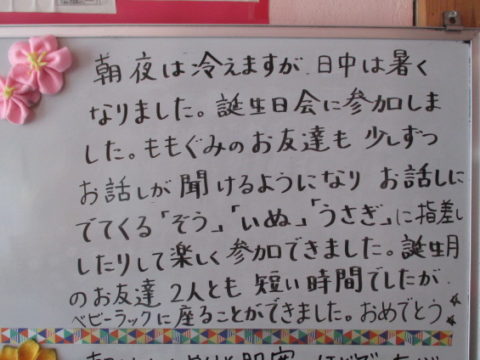 朝夜は冷えますが、日中は暑く
なりました。誕生日会に参加しま
した。ももぐみのお友達も 少しずつ
お話しが聞けるようになり お話しに
でてくる「ぞう」「いぬ」「うさぎ」に指差し
したりして楽しく参加できました。誕生月
のお友達2人とも 短い時間でしたが、
ベビーラックに座ることができました。おめでとう